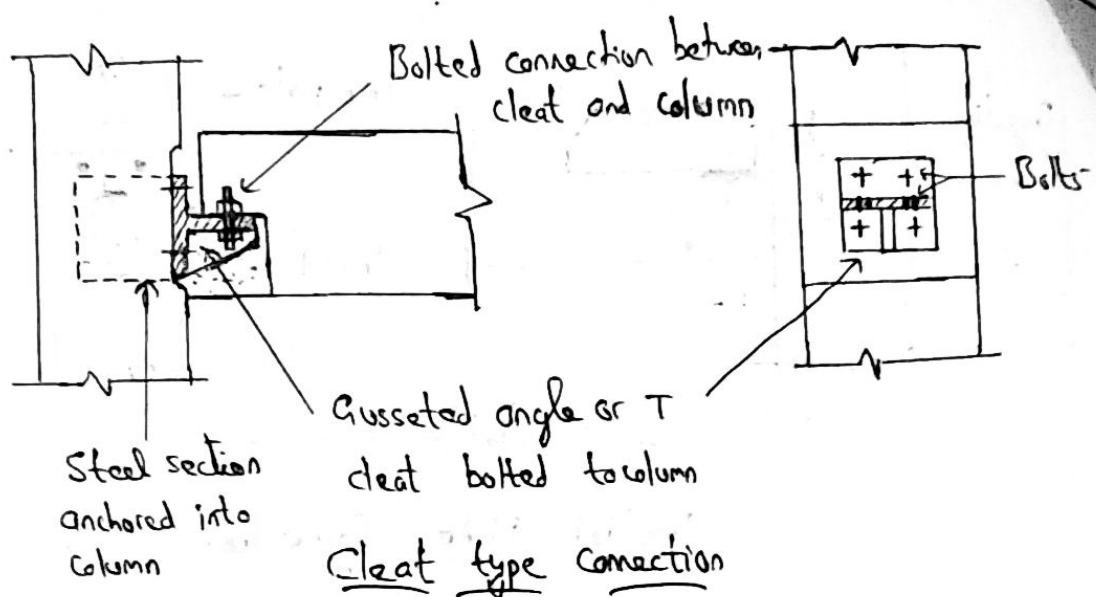 Bolted connection between
cleat and column
Bolts
Gusseted angle or T
cleat bolted to column
Steel section
anchored into
column
Cleat type Connection